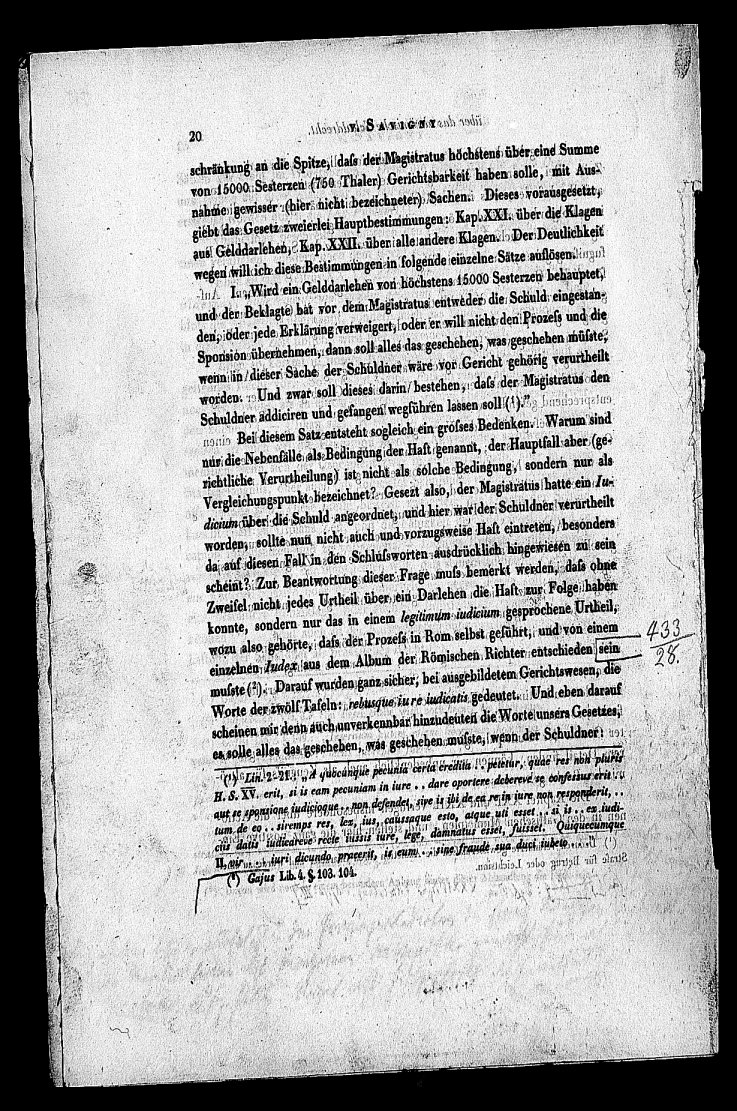 20
v. SAVIGNY
schränkung an die Spitze, daſs der Magistratus höchstens über eine Summe
von 15000 Sesterzen (750 Thaler) Gerichtsbarkeit haben solle, mit Aus-
nahme gewisser (hier nicht bezeichneter) Sachen. Dieses vorausgesetzt,
giebt das Gesetz zweierlei Hauptbestimmungen: Kap. XXI. über die Klagen
aus Gelddarlehen, Kap. XXII. über alle andere Klagen. Der Deutlichkeit
wegen will ich diese Bestimmungen in folgende einzelne Sätze auflösen.
I. „Wird ein Gelddarlehen von höchstens 15000 Sesterzen behauptet,
und der Beklagte hat vor dem Magistratus entweder die Schuld eingestan-
den, oder jede Erklärung verweigert, oder er will nicht den Prozeſs und die
Sponsion übernehmen, dann soll alles das geschehen, was geschehen müſste,
wenn in dieser Sache der Schuldner wäre vor Gericht gehörig verurtheilt
worden. Und zwar soll dieses darin bestehen, daſs der Magistratus den
Schuldner addiciren und gefangen wegführen lassen soll (¹)."
Bei diesem Satz entsteht sogleich ein groſses Bedenken. Warum sind
nur die Nebenfälle als Bedingung der Haft genannt, der Hauptfall aber (ge-
richtliche Verurtheilung) ist nicht als solche Bedingung, sondern nur als
Vergleichungspunkt bezeichnet? Gesezt also, der Magistratus hatte ein Iu-
dicium über die Schuld angeordnet, und hier war der Schuldner verurtheilt
worden, sollte nun nicht auch und vorzugsweise Haft eintreten, besonders
da auf diesen Fall in den Schluſsworten ausdrücklich hingewiesen zu sein
scheint? Zur Beantwortung dieser Frage muſs bemerkt werden, daſs ohne
Zweifel nicht jedes Urtheil über ein Darlehen die Haft zur Folge haben
konnte, sondern nur das in einem legitimum iudicium gesprochene Urtheil,
wozu also gehörte, daſs der Prozeſs in Rom selbst geführt, und von einem
einzelnen Iudex aus dem Album der Römischen Richter entschieden sein
433
28.
muſste (²). Darauf wurden ganz sicher, bei ausgebildetem Gerichtswesen, die
Worte der zwölf Tafeln: rebusque iure iudicatis gedeutet. Und eben darauf
scheinen mir denn auch unverkennbar hinzudeuten die Worte unsers Gesetzes,
es solle alles das geschehen, was geschehen müſste, wenn der Schuldner
(¹) Lin. 2-21. „A quocunque pecunia certa credita .. petetur, quae res non pluris
H. S. XV. erit, si is eam pecuniam in iure .. dare oportere debereve se confessus erit ..
aut se sponsione iudicioque .. non defendet, sive is ibi de ea re in iure non responderit, ..
tum de eo .. siremps res, lex, ius, caussaque esto, atque uti esset .. si is .. ex iudi-
ciis datis iudicareve recte iussis iure, lege, damnatus esset, fuisset. Quiquecumque
II. vir .. iuri dicundo praeerit, is eum .. sine fraude sua duci iubeto
(²) Gajus Lib. 4. §. 103. 104.